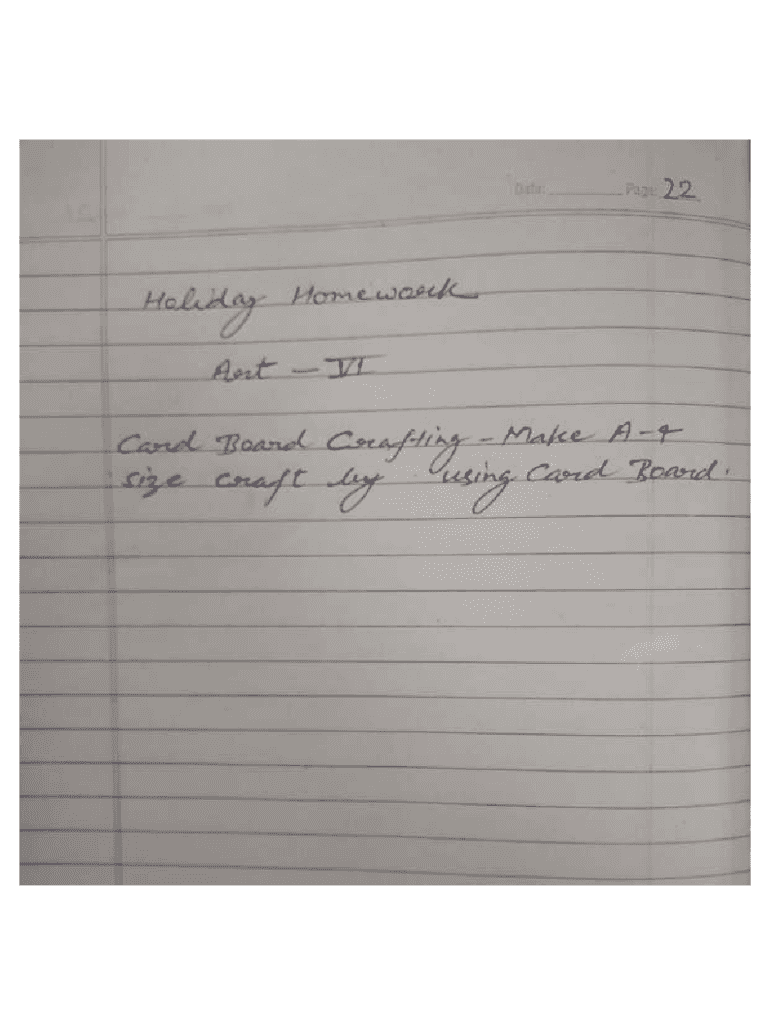 Date: Page 22
Holiday Homework
Art - VI
Card Board Crafting - Make A-4
size craft by using Card Board.